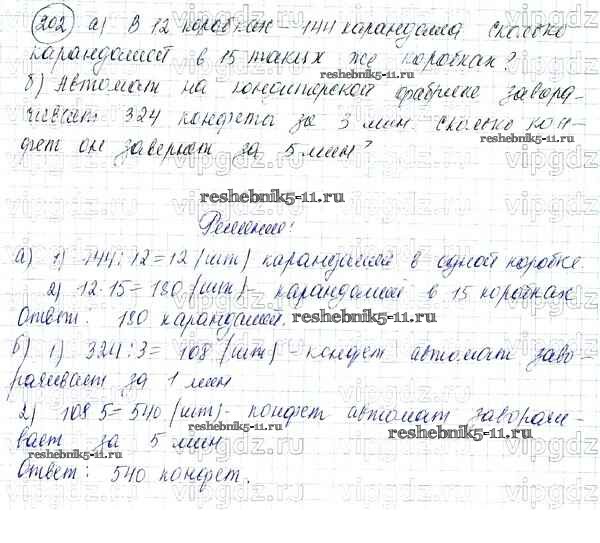 202 а) В 12 коробках - 144 карандаша сколько
карандашей в 15 таких же коробках?
reshebnik5-11.ru
б) Автомат на кондитерской фабрике завора-
чивает 324 конфеты за 3 мин. Сколько кон-
reshebnik5-11.ru
фет он завернет за 5 мин?
reshebnik5-11.ru
Решение:
а) 1) 144:12=12 (шт) карандашей в одной коробке.
2) 12·15=180 (шт)- карандашей в 15 коробках
Ответ: 180 карандашей.
reshebnik5-11.ru
б) 1) 324:3= 108 (шт) - конфет автомат заво-
рачивает за 1 мин
2) 108 5= 540 (шт)- конфет автомат заворачи-
вает за 5 мин
reshebnik5-11.ru
reshebnik5-11.ru
Ответ: 540 конфет.